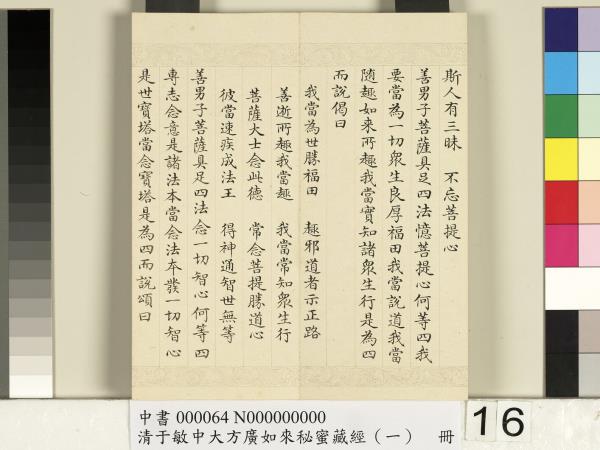 斯人有三昧　不忘菩提心
善男子菩薩具足四法憶菩提心何等四我
要當為一切衆生良厚福田我當說道我當
隨趣如來所趣我當實知諸衆生行是為四
而說偈曰
我當為世勝福田　趣邪道者示正路
善逝所趣我當趣　我當常知衆生行
菩薩大士念此德　常念菩提勝道心
彼當速疾成法王　得神通智世無等
善男子菩薩具足四法念一切智心何等四
專志念意是諸法本當念法本發一切智心
是世寶塔當念寶塔是為四而說頌曰
中書 000064 N000000000
清于敏中大方廣如來秘蜜藏經（一）　冊
16